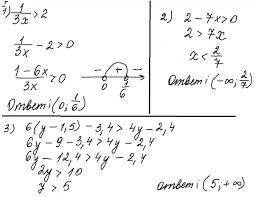 1) 1/3x > 2
1/3x - 2 > 0
1-6x/3x > 0
- + -
0 1/6
Ответ: (0; 1/6)
2) 2-7x>0
2>7x
x<2/7
Ответ: (-∞; 2/7)
3) 6(y-1,5)-3,4>4y-2,4
6y-9-3,4>4y-2,4
6y-12,4>4y-2,4
2y>10
y>5
Ответ: (5; +∞)